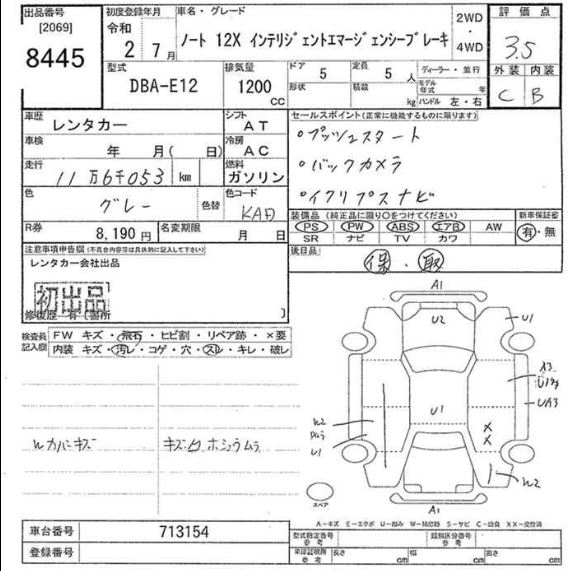 出品番号 初度登録年月 車名・グレード 2WD・4WD 評価点
[2069] 令和 2年 7月 ノート 12X インテリジェントエマージェンシーブレーキ 3.5
8445
型式 DBA-E12 排気量 1200 CC ドア 5 定員 5 人 ディーラー・並行 外装 内装
形状 積載 kg モデル年式 年 ハンドル 左・右 C B
車歴 レンタカー シフト AT セールスポイント(正常に機能するものに限ります)
車検 年 月( 日) 冷房 AC ○プッシュスタート
走行 11万6千053 km 燃料 ガソリン ○バックカメラ
色 グレー 色替 色コード KAD ○イクリプスナビ
R券 8,190円 名変期限 月 日 装備品 (純正品に限り○をつけてください) 新車保証書
PS PW ABS エアB AW 有・無
SR ナビ TV カワ
注意事項申告欄(不具合内容等は具体的に記入して下さい) 後日品 保・取
レンタカー会社出品
初出品
修復歴 有(箇所 )
検査員記入欄 FW キズ・飛石・ヒビ割・リペア跡・×要
内装 キズ・汚レ・コゲ・穴・スレ・キレ・破レ
A1
U2 U1
A3
UA3
U1
W2
U1 X
X
W2
A1
スペア
A-キズ E-エクボ U-凹み W-補修跡 S-サビ C-腐食 XX-交換済
車台番号 713154 型式指定番号 参考 類別区分番号 参考
登録番号 車庫証明用 参考 長さ cm 幅 cm 高さ cm